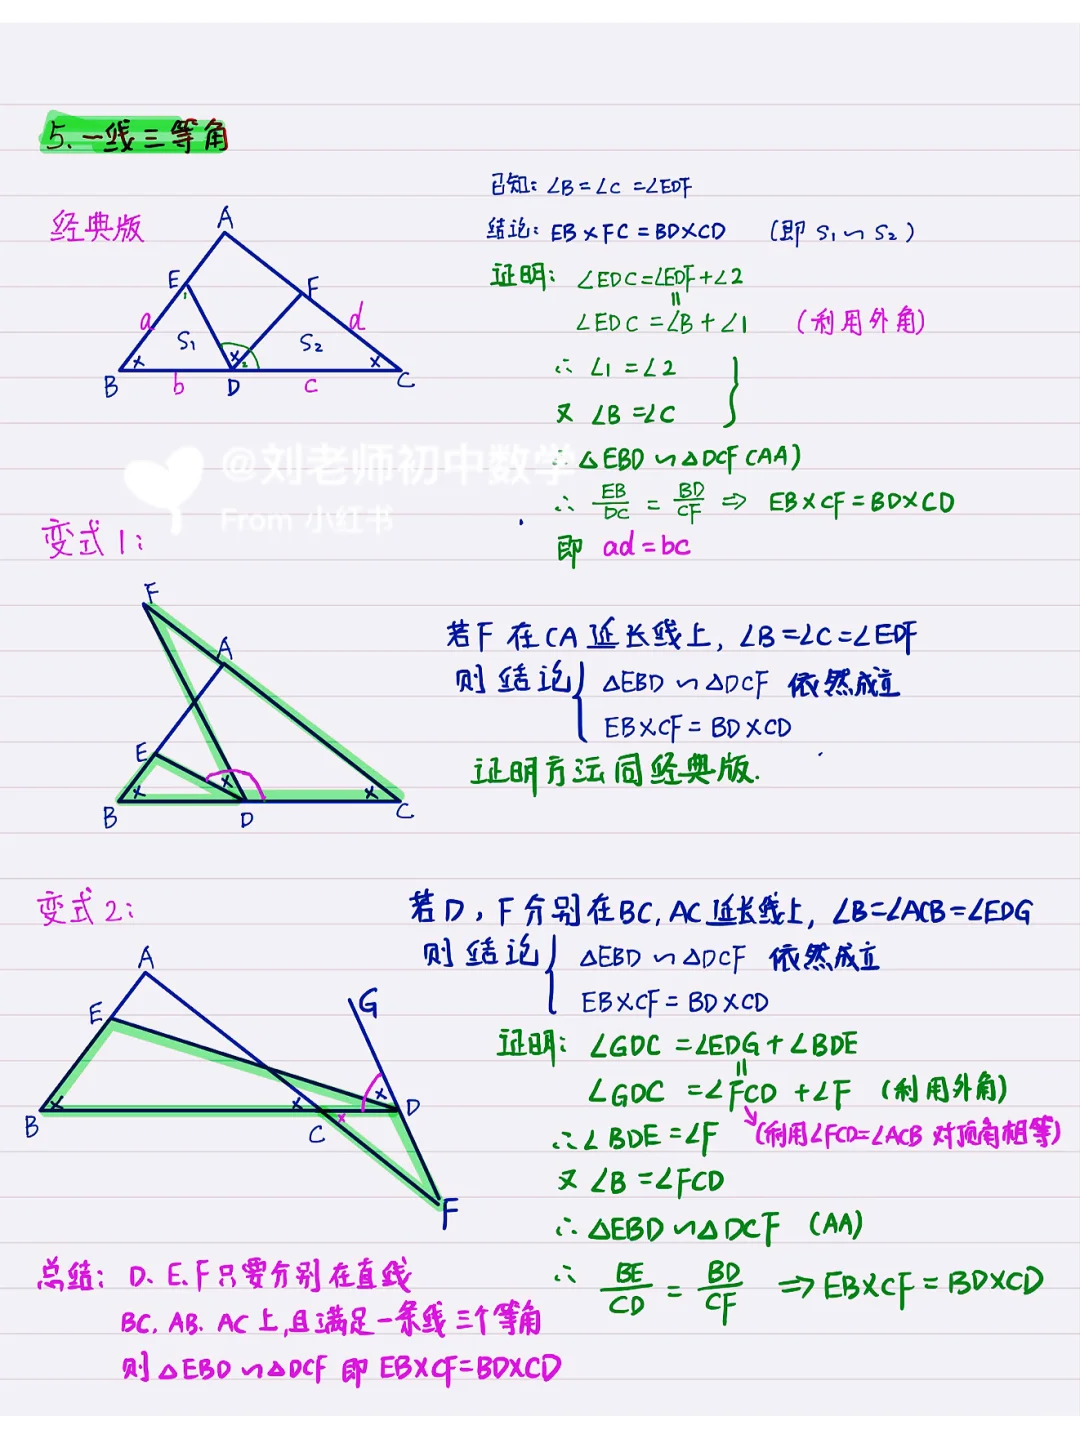 5.一线三等角
经典版
A
E
F
1
a
d
S₁
S₂
x
x
2
x
B
b
D
c
C
已知: ∠B=∠C=∠EDF
结论: EB×FC=BD×CD (即 S₁∽S₂)
证明: ∠EDC=∠EDF+∠2
||
∠EDC=∠B+∠1 (利用外角)
∴ ∠1=∠2
又 ∠B=∠C
∴ △EBD∽△DCF (AA)
∴ EB/DC = BD/CF ⇒ EB×CF=BD×CD
即 ad=bc
@刘老师初中数学
From 小红书
变式1:
F
A
E
x
x
x
B
D
C
若F在CA延长线上, ∠B=∠C=∠EDF
则结论{ △EBD∽△DCF 依然成立
EB×CF=BD×CD
证明方法同经典版.
变式2:
A
E
G
x
x
x
x
B
C
D
F
若D, F分别在BC, AC延长线上, ∠B=∠ACB=∠EDG
则结论{ △EBD∽△DCF 依然成立
EB×CF=BD×CD
证明: ∠GDC=∠EDG+∠BDE
||
∠GDC=∠FCD+∠F (利用外角)
∴∠BDE=∠F (利用∠FCD=∠ACB 对顶角相等)
又 ∠B=∠FCD
∴△EBD∽△DCF (AA)
∴ BE/CD = BD/CF ⇒ EB×CF=BD×CD
总结: D、E、F只要分别在直线
BC, AB、AC上,且满足一条线三个等角
则△EBD∽△DCF 即 EB×CF=BD×CD